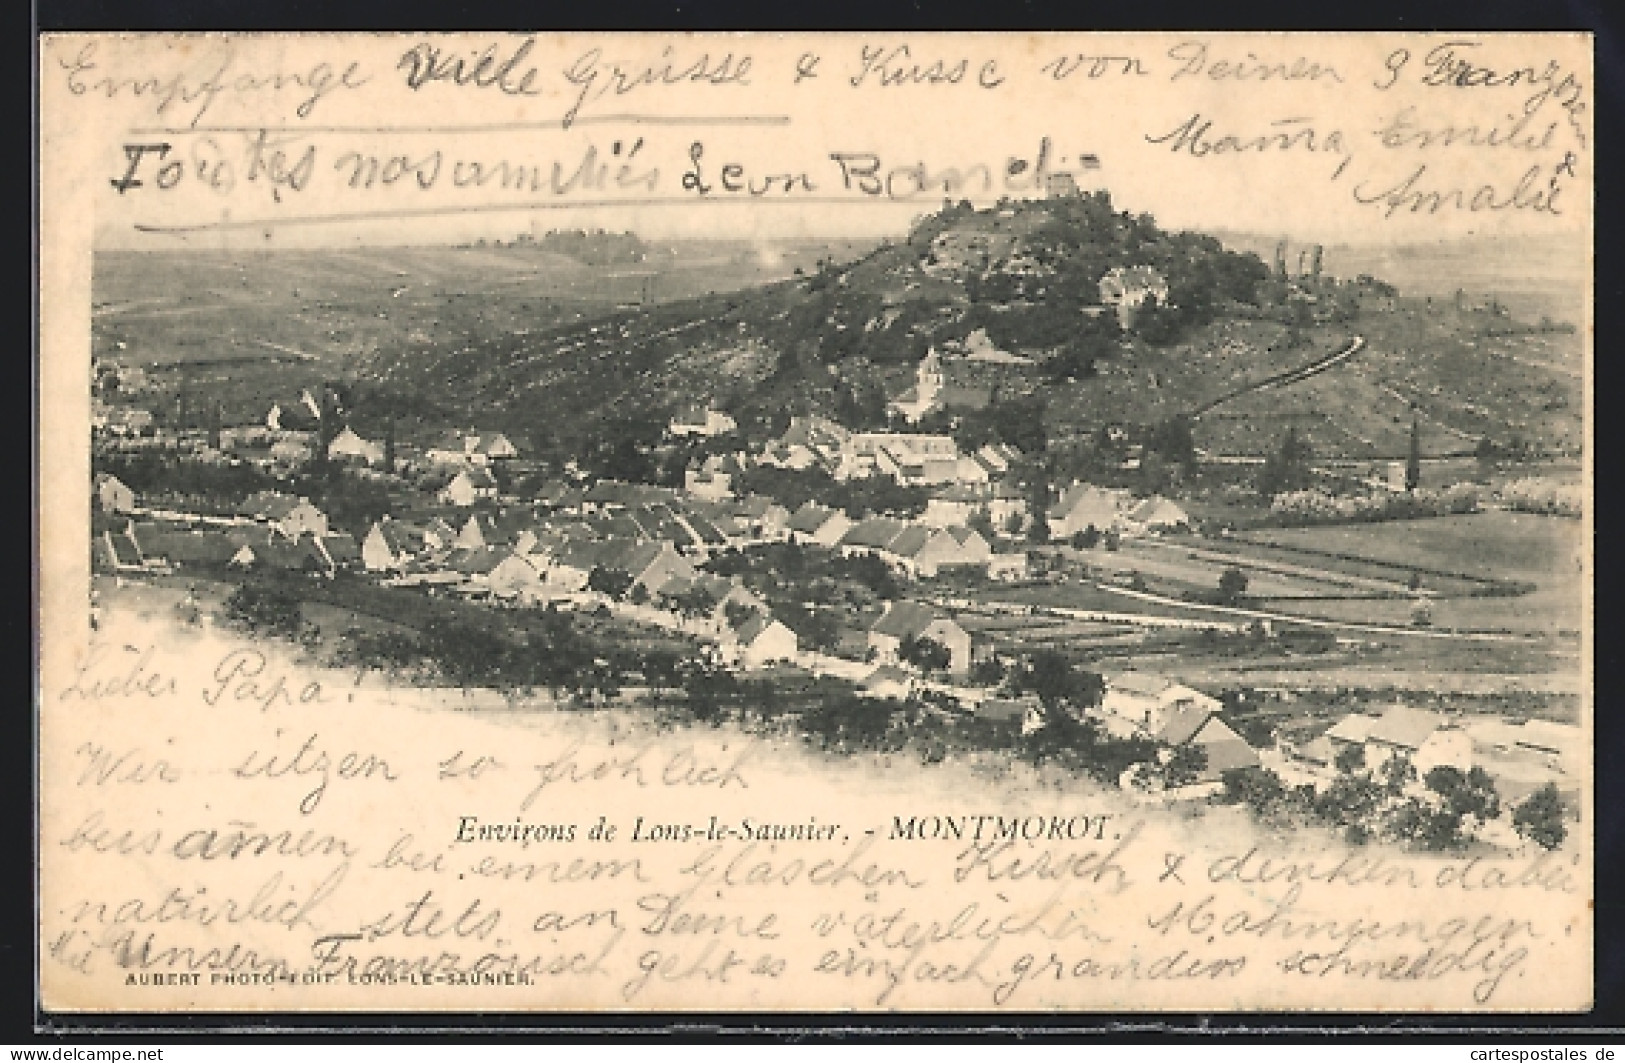 Empfange Viele Grüsse & Küsse von Deinen 3 Franzosen
Mama, Emilie &
Amalie
Toutes nos amitiés Leon
Lieber Papa!
Wir sitzen so fröhlich
beisammen bei einem Gläschen Kirsch & denken dabei
natürlich stets an Deine väterlichen Mahnungen!
Mit Unserm Französisch geht es einfach grandios schneidig.
Environs de Lons-le-Saunier. - MONTMOROT.
AUBERT PHOTO-EDIT. LONS-LE-SAUNIER.
https://www.cartespostales.eu
cartespostales de